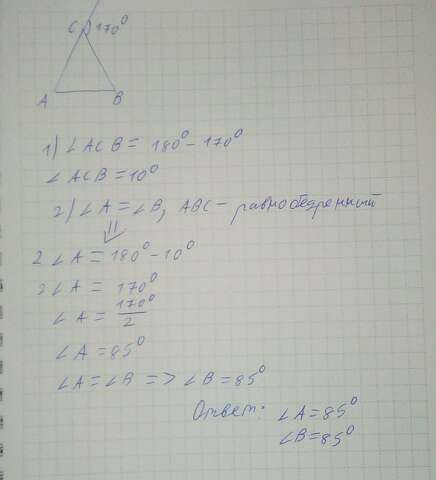 C 170°
A B
1) ∠ACB = 180° - 170°
∠ACB = 10°
2) ∠A = ∠B, ABC - равнобедренный
2 ∠A = 180° - 10°
2 ∠A = 170°
∠A = 170°/2
∠A = 85°
∠A = ∠B => ∠B = 85°
Ответ: ∠A = 85°
∠B = 85°